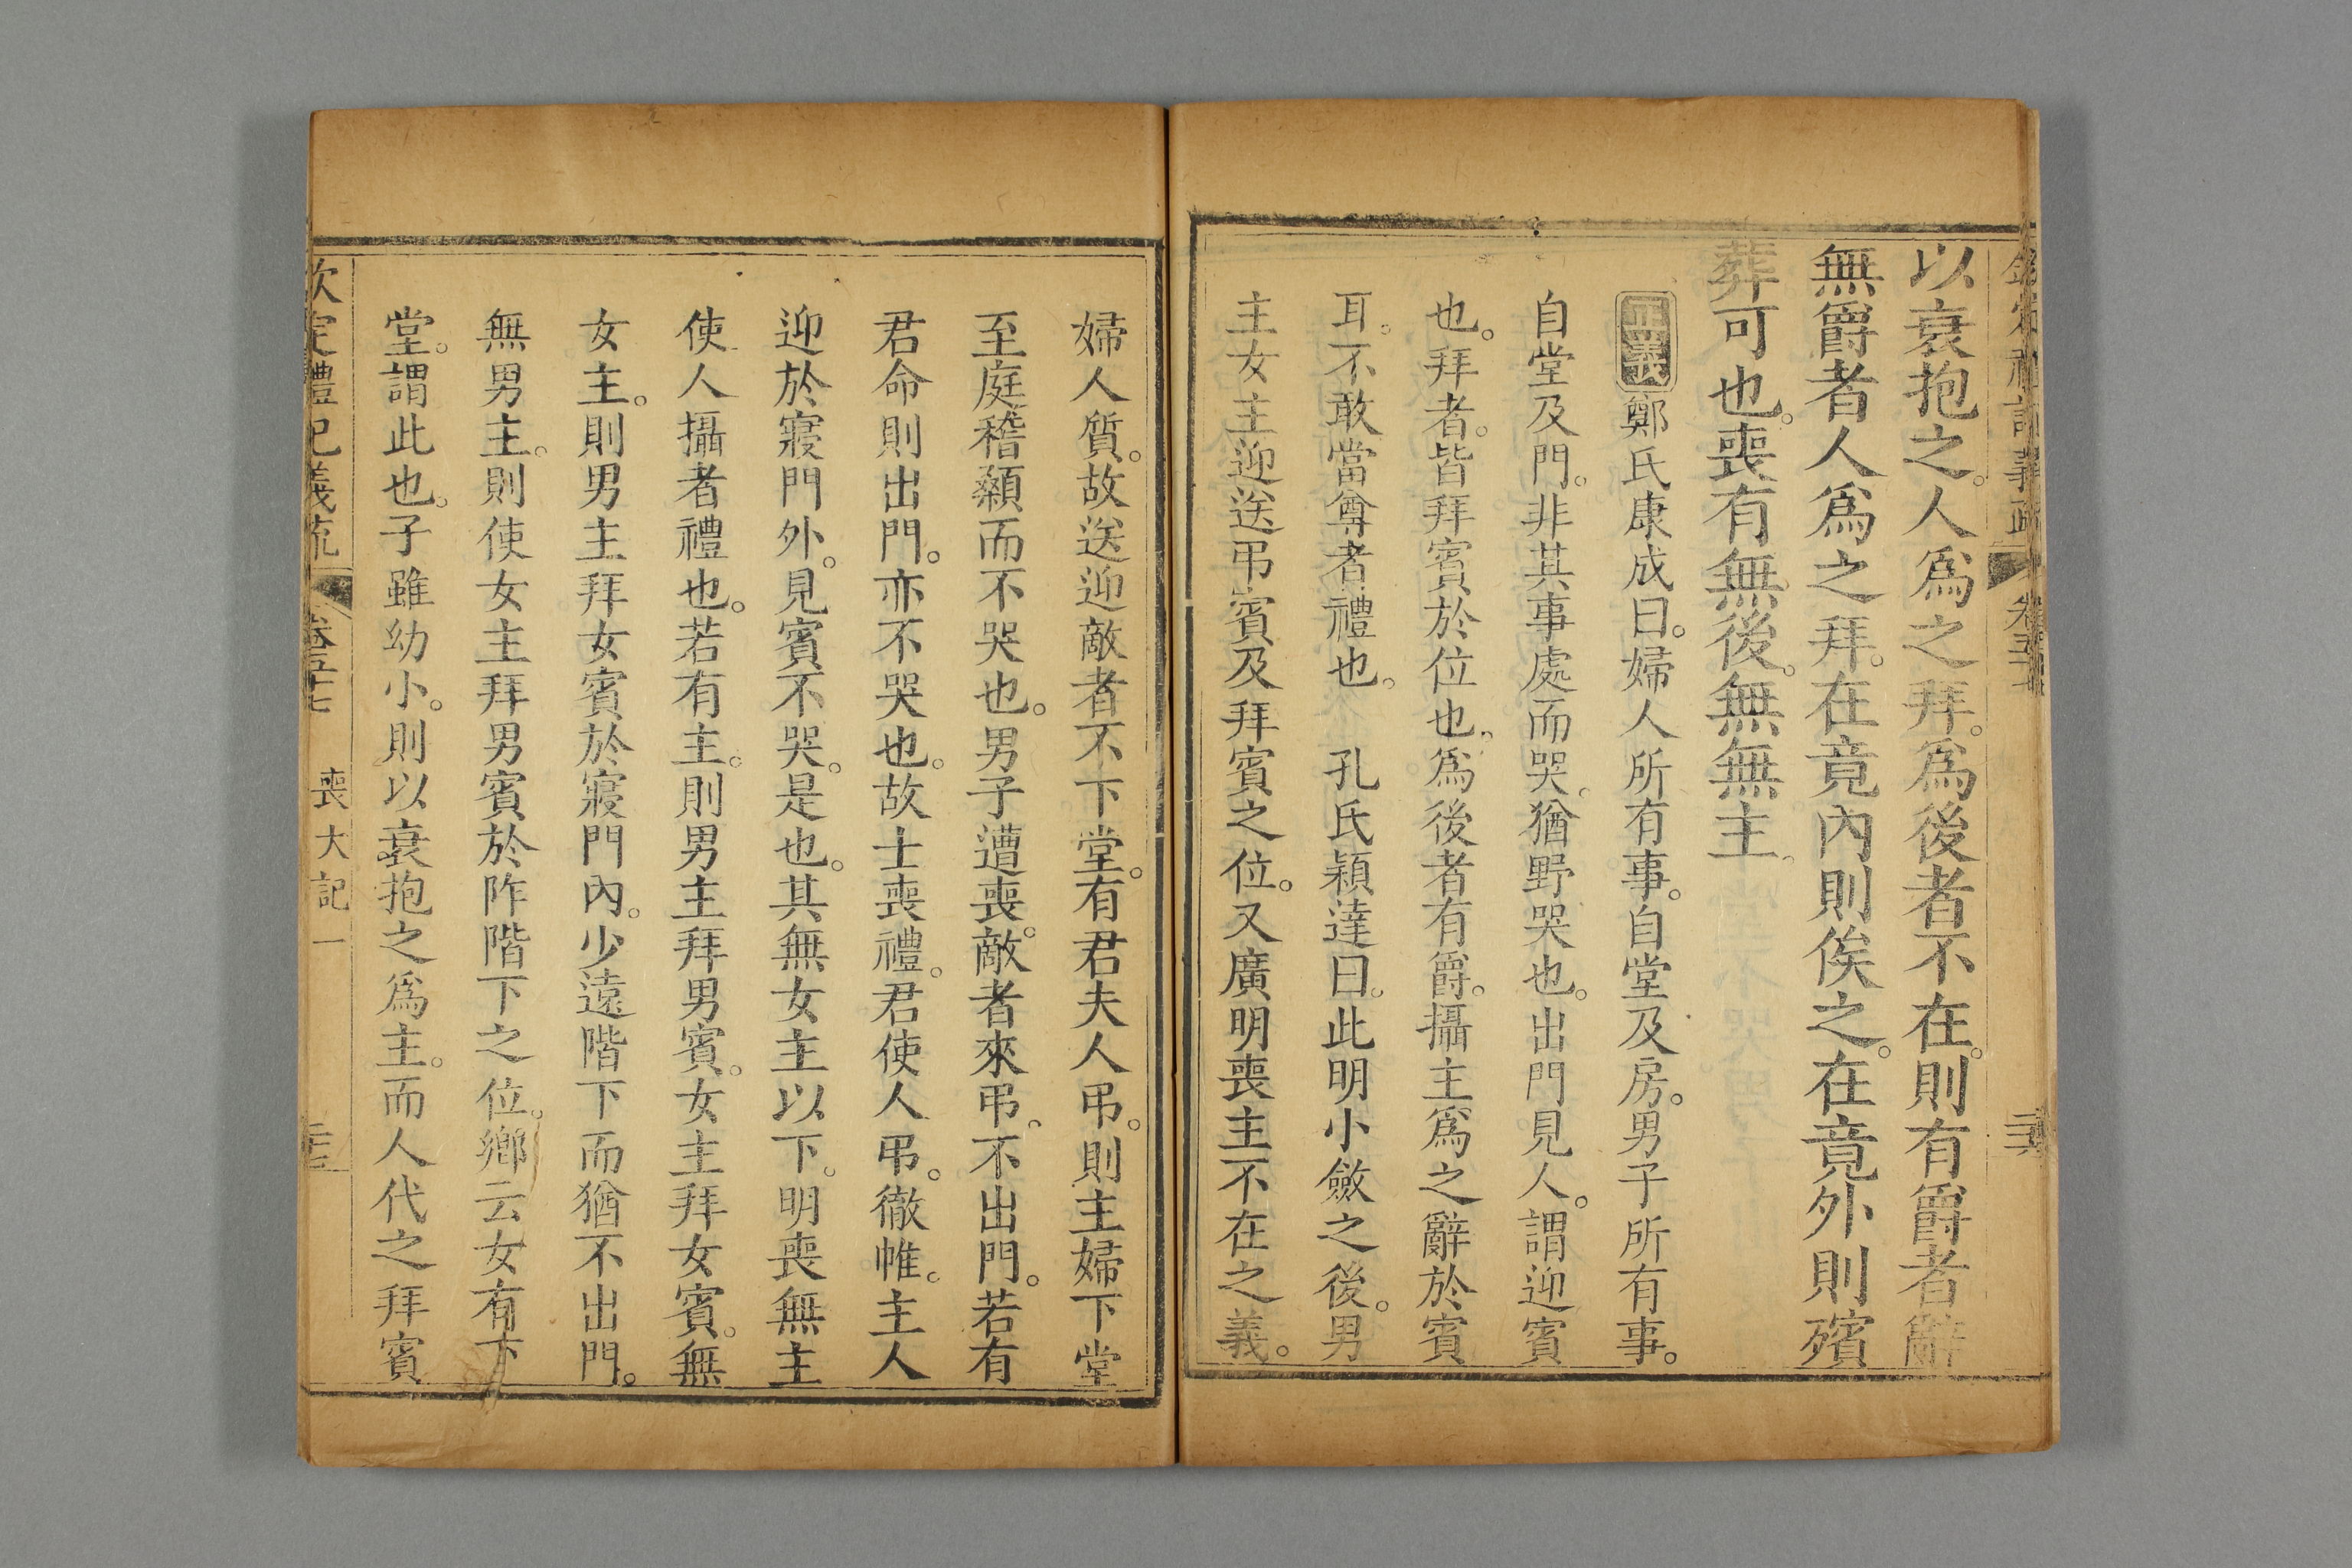 欽定禮記義疏 卷五十七 二十六
以衰抱之。人爲之拜。爲後者不在。則有爵者辭
無爵者人爲之拜。在竟內則俟之。在竟外則殯
葬可也。喪有無後。無無主。
正義鄭氏康成曰。婦人所有事。自堂及房。男子所有事。
自堂及門。非其事處而哭。猶野哭也。出門見人。謂迎賓
也。拜者。皆拜賓於位也。爲後者有爵。攝主爲之辭於賓
耳。不敢當尊者禮也。 孔氏穎達曰。此明小斂之後。男
主女主迎送弔賓及拜賓之位。又廣明喪主不在之義。
婦人質。故送迎敵者不下堂。有君夫人弔。則主婦下堂
至庭稽顙而不哭也。男子遭喪。敵者來弔。不出門。若有
君命則出門。亦不哭也。故士喪禮。君使人弔。徹帷。主人
迎於寢門外。見賓不哭。是也。其無女主以下。明喪無主
使人攝者禮也。若有主。則男主拜男賓。女主拜女賓。無
女主。則男主拜女賓於寢門內。少遠階下而猶不出門。
無男主。則使女主拜男賓於阼階下之位。鄉云女有下
堂。謂此也。子雖幼小。則以衰抱之爲主。而人代之拜賓
欽定禮記義疏 卷五十七 喪大記一 二十七